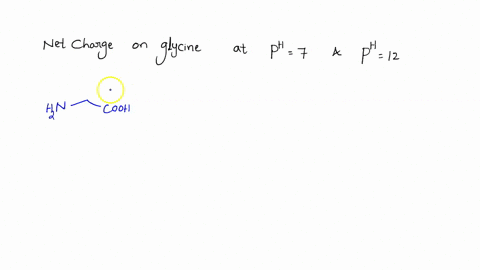 Net Charge on glycine at pH = 7 & pH = 12
H2N COOH